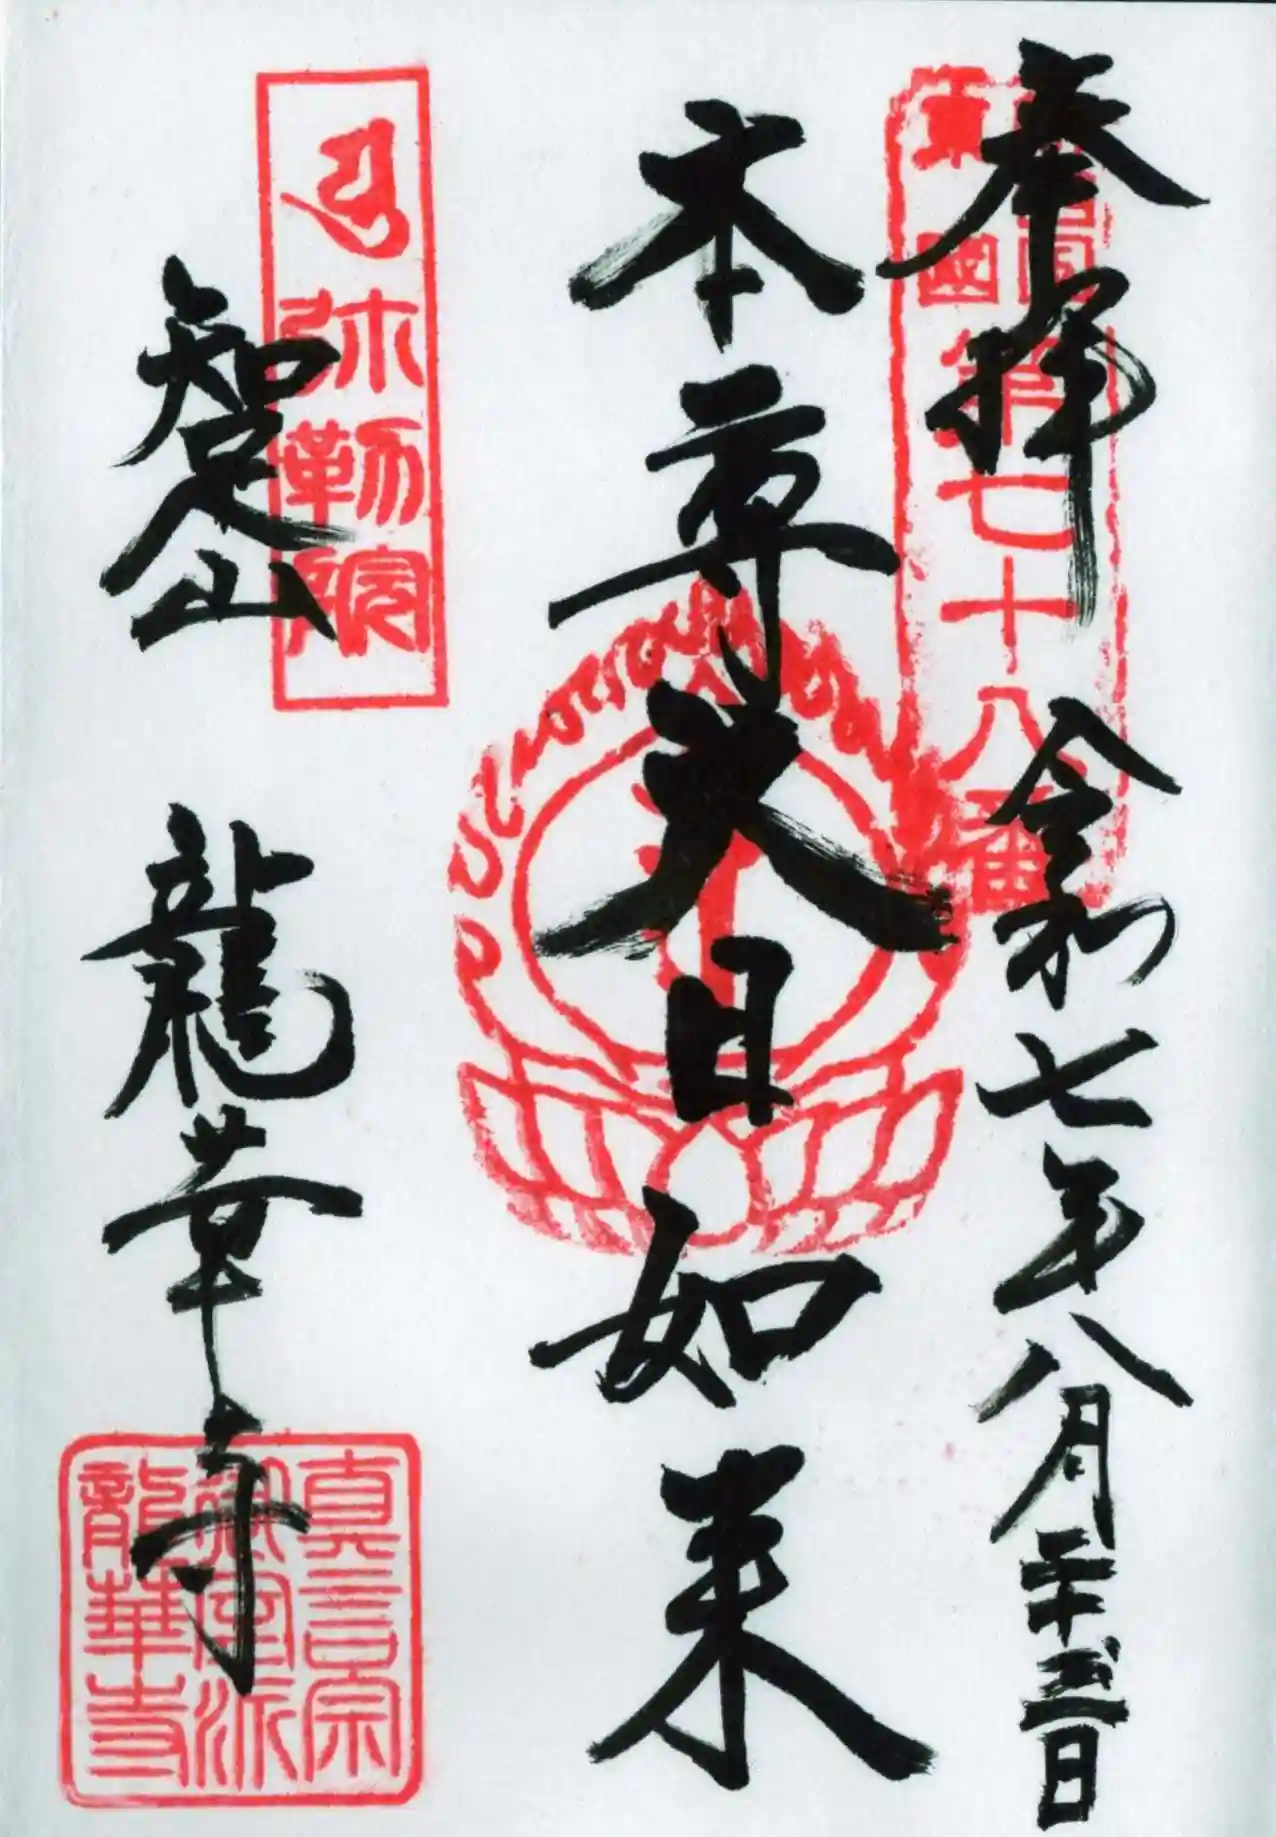 奉拝
令和七年八月二十日
東國
第七十八番
本尊大日如来
知足山
龍華寺
弥勒院
真言宗
御室派
龍華寺